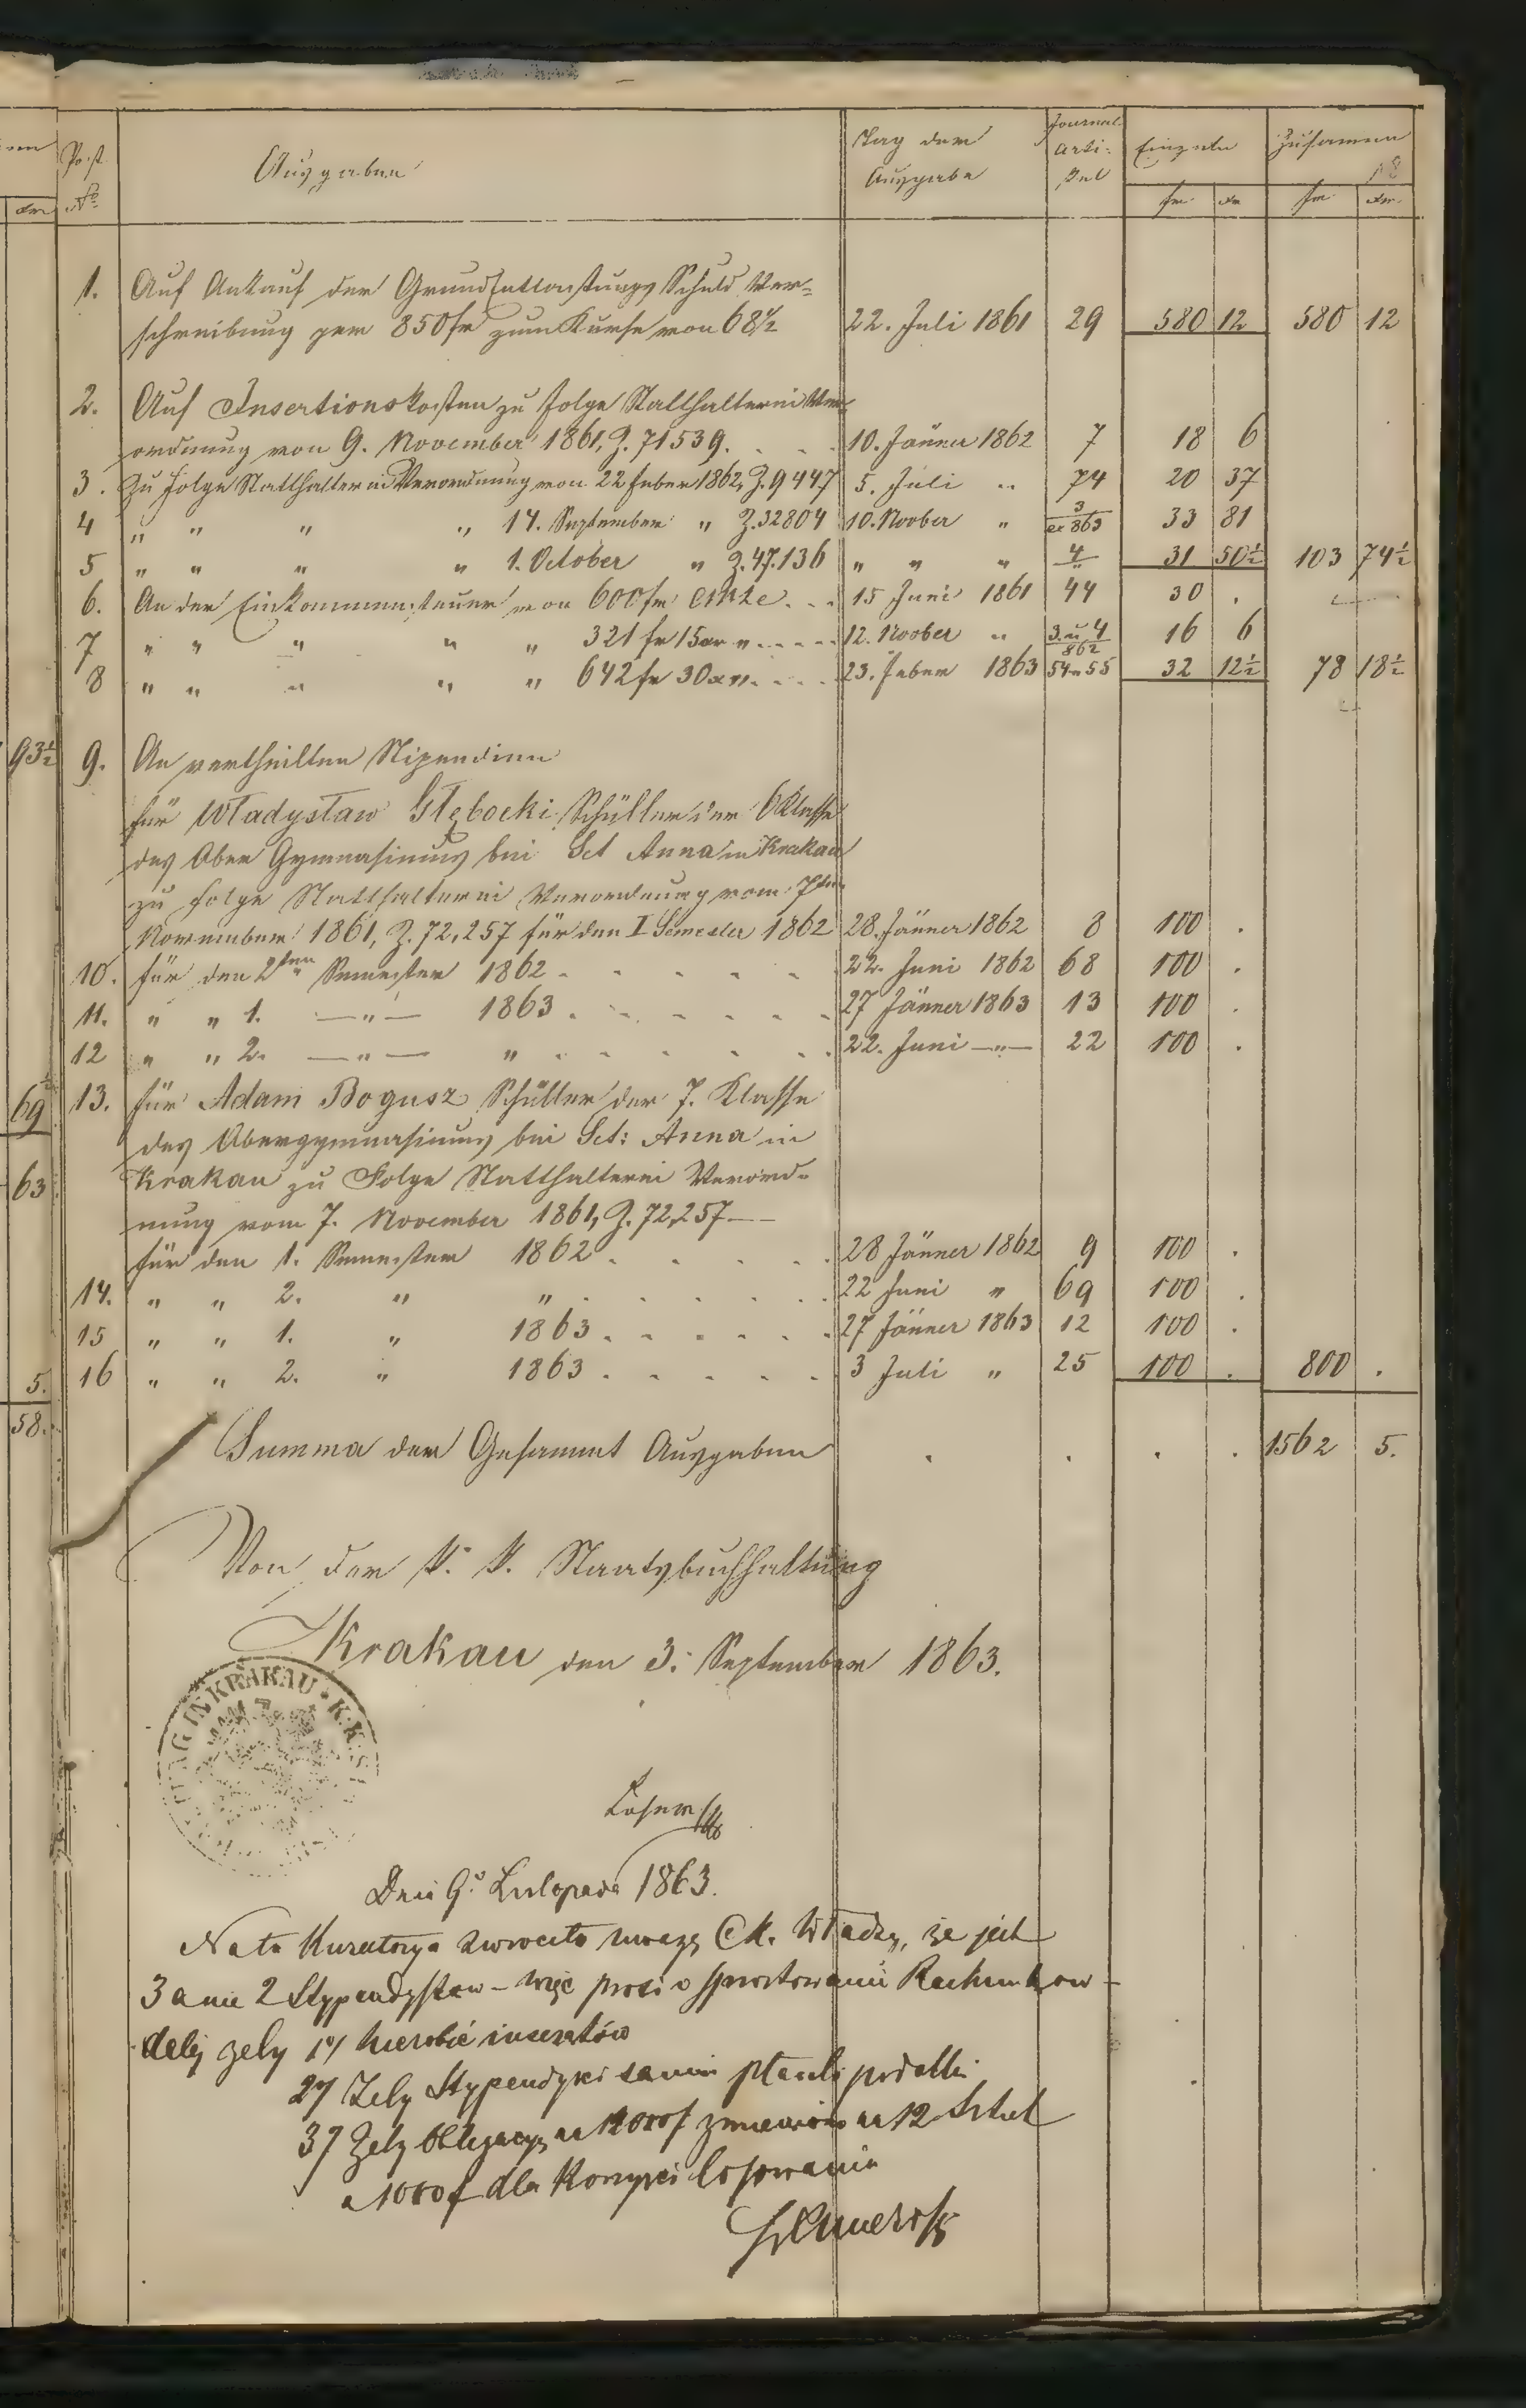 Post
No
Ausgaben
Tag der
Ausgabe
Journal-
Arti-
kel
Einzeln
Zusammen
fr
xr
fr
xr
1. Auf Ankauf der Grundentlastungs Schuld Ver=
schreibung per 850 fr zum Kurse von 68 1/4 22. Juli 1861 29 580 12 580 12
2. Auf Insertionskosten zu Folge Statthalterei Ver-
ordnung von 9. November 1861, Z. 71539. 10. Jänner 1862 7 18 6
3. Zu Folge Statthalterei Verordnung von 22 Feber 1862, Z. 9447 5. Juli " 74 20 37
4 " " " " 14. September " Z. 32804 10. Novber " 3/ex 863 33 81
5 " " " " 1. October " Z. 47.136 " " " 4/" 31 50 1/2 103 74 1/2
6. An der Einkommensteuer von 600 fr CMze . . . 15 Juni 1861 44 30 .
7 " " " " " 321 fr 15 xr " . . . . 12. Novber " 3. u 4/862 16 6
8 " " " " " 642 fr 30 xr " . . . . 23. Feber 1863 54 u 55 32 12 1/2 78 18 1/2
93 1/2
9. An vertheilten Stipendien
für Władysław Głębocki Schüller der 6 Klasse
des Ober Gymnasiums bei Sct Anna in Krakau
zu Folge Statthalterei Verordnung vom 7ten
November 1861, Z. 72,257 für den I Semester 1862 28. Jänner 1862 8 100 .
10. für den 2ten Semester 1862 . . . . . . 22. Juni 1862 68 100 .
11. " " 1. —"— 1863 . . . . . . 27 Jänner 1863 13 100 .
12 " " 2. —"— " . . . . . . 22. Juni —"— 22 100 .
69
13. für Adam Bogusz Schüller der 7. Klasse
des Obergymnasiums bei Sct: Anna in
63
Krakau zu Folge Statthalterei Verord-
nung vom 7. November 1861, Z. 72,257 —
für den 1. Semester 1862 . . . . . 28 Jänner 1862 9 100 .
14. " " 2. " " . . . . . . 22 Juni " 69 100 .
15 " " 1. " 1863 . . . . . . 27 Jänner 1863 12 100 .
5. 16 " " 2. " 1863 . . . . . . 3 Juli " 25 100 . 800 .
58.
Summa der Gesammt Ausgaben . . . . 1562 5.
Von der k. k. Staatsbuchhaltung
Krakau den 3. September 1863.
IN KRAKAU · K.K.
Dnia 9o Listopada 1863.
Na to Kuratorya zwrociła uwagę C.k. Władzy, że jest
3 a nie 2 Stypendystów – więc prosi o sprostowanie Rachunków –
dalej żeby 1o/ nierobić inseratów
2o/ Żeby Stypendyści sami płacili podatki
3o/ Żeby Obligacyę na 12000f zmieniono na 12 Sztuk
a 1000f dla Korzyści losowania